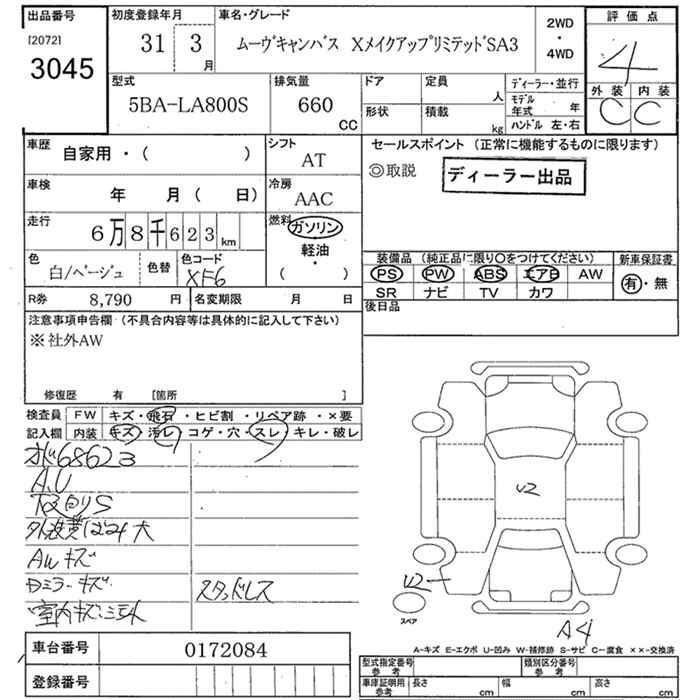 出品番号
[2072]
3045
初度登録年月
31 3
月
車名・グレード
ムーヴキャンバス XメイクアップリミテッドSA3
2WD
・
4WD
評価点
4
外装 内装
C C
型式
5BA-LA800S
排気量
660
CC
ドア
形状
定員
人
積載
kg
ディーラー・並行
モデル年式 年
ハンドル 左・右
車歴
自家用・( )
シフト
AT
車検
年 月( 日)
冷房
AAC
走行
6万8千623km
燃料
ガソリン
軽油
・
( )
色
白/ベージュ
色替
色コード
XF6
R券 8,790 円
名変期限 月 日
セールスポイント (正常に機能するものに限ります)
◎取説
ディーラー出品
装備品 (純正品に限り○をつけてください)
新車保証書
PS PW ABS エアB AW
有・無
SR ナビ TV カワ
後日品
注意事項申告欄・(不具合内容等は具体的に記入して下さい)
※社外AW
修復歴 有 [箇所 ]
検査員
記入欄
FW キズ・飛石・ヒビ割・リペア跡・×要
内装 キズ・汚レ・コゲ・穴・スレ・キレ・破レ
68623
A.U
下回りS
AWキズ
ミラーキズ
スタッドレス
室内キズ
U2
U2
スペア
A4
車台番号 0172084
登録番号
A-キズ E-エクボ U-凹み W-補修跡 S-サビ C-腐食 ××-交換済
型式指定番号
参考
類別区分番号
参考
車庫証明用
参考
長さ cm
幅 cm
高さ cm